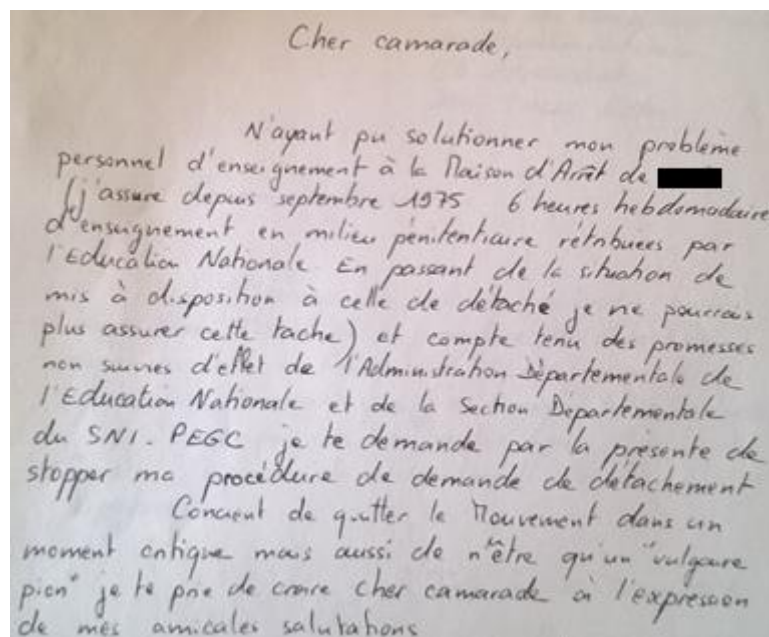 Cher camarade,
N'ayant pu solutionner mon problème
personnel d'enseignement à la Maison d'Arrêt de
(j'assure depuis septembre 1975 6 heures hebdomadaire
d'enseignement en milieu pénitentiaire rétribuées par
l'Education Nationale En passant de la situation de
mis à disposition à celle de détaché je ne pourrais
plus assurer cette tache) et compte tenu des promesses
non suivies d'effet de l'Administration Départementale de
l'Education Nationale et de la Section Departementale
du SNI. PEGC je te demande par la présente de
stopper ma procédure de demande de détachement
Conscient de quitter le Mouvement dans un
moment critique mais aussi de n'être qu'un "vulgaire
pion" je te prie de croire cher camarade à l'expression
de mes amicales salutations